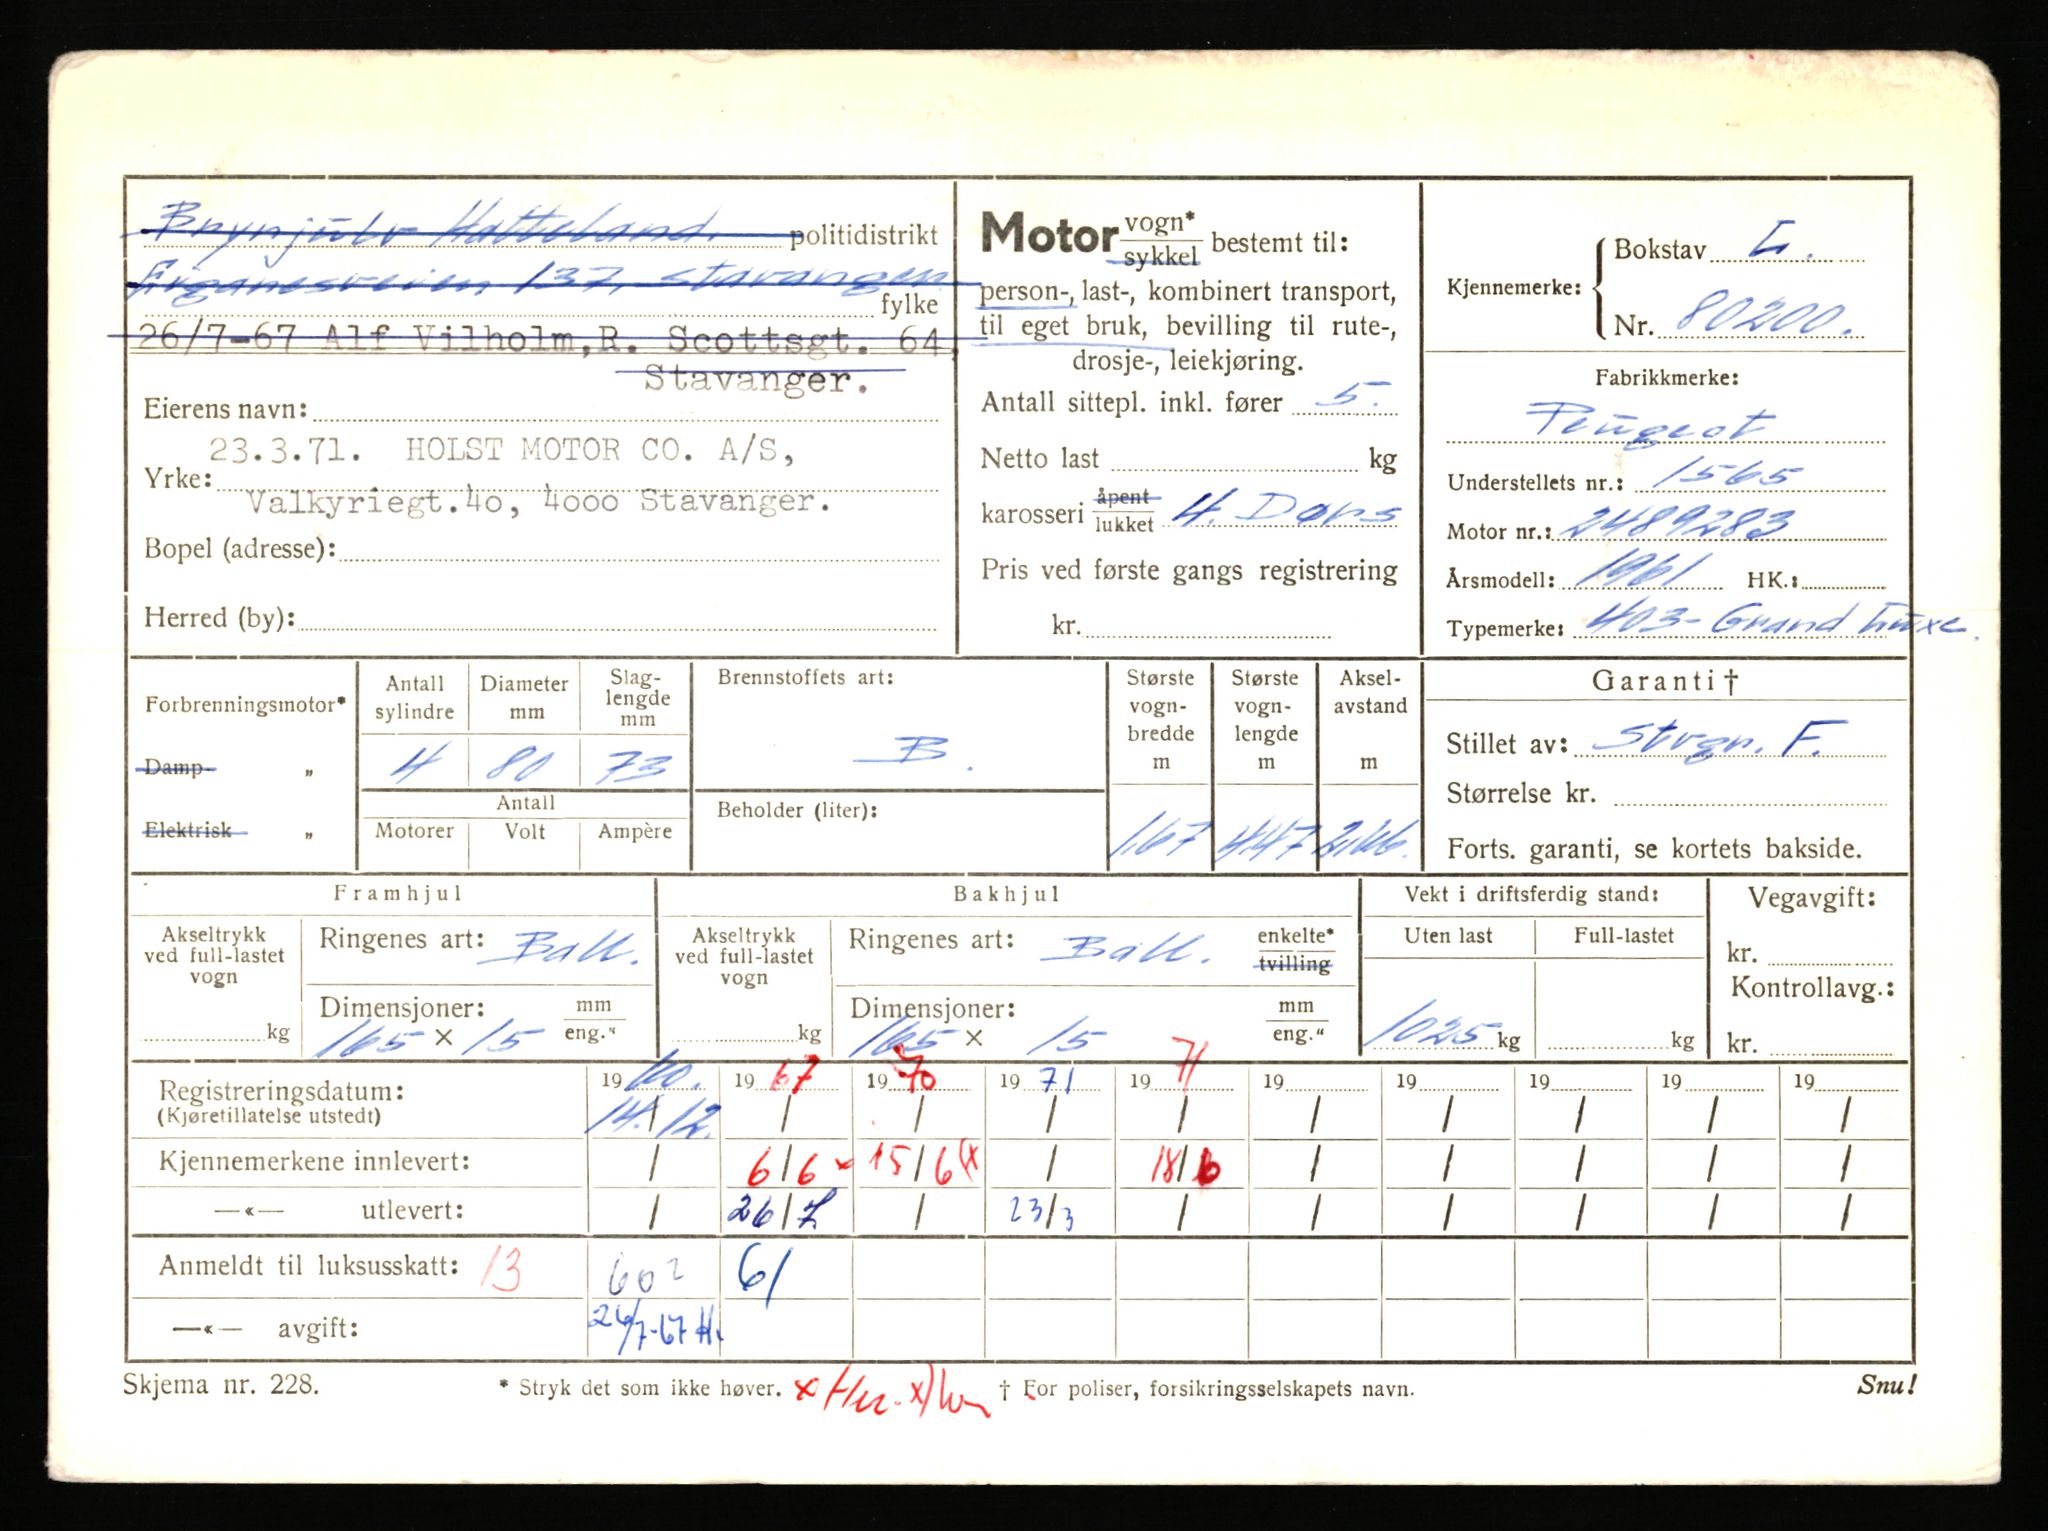 Brynjulv Hatteland. politidistrikt
Eiganesveien 137, Stavanger
fylke
26/7-67 Alf Vilholm, R. Scottsgt. 64,
Stavanger.
Eierens navn:
23.3.71. HOLST MOTOR CO. A/S,
Yrke:
Valkyriegt.40, 4000 Stavanger.
Bopel (adresse):
Herred (by):
Motor vogn* / sykkel bestemt til:
person-, last-, kombinert transport,
til eget bruk, bevilling til rute-,
drosje-, leiekjøring.
Antall sittepl. inkl. fører 5.
Netto last kg
karosseri åpent / lukket 4. Dørs
Pris ved første gangs registrering
kr.
Kjennemerke: Bokstav L.
Nr. 80200.
Fabrikkmerke:
Peugeot
Understellets nr.: 1565
Motor nr.: 2489283
Årsmodell: 1961 HK.:
Typemerke: 403- Grand Luxe.
Forbrenningsmotor*
Damp- „
Elektrisk „
Antall sylindre
4
Diameter mm
80
Slag-
lengde
mm
73
Antall
Motorer Volt Ampère
Brennstoffets art:
B.
Beholder (liter):
Største
vogn-
bredde
m
1.67
Største
vogn-
lengde
m
4.47
Aksel-
avstand
m
2.66.
Garanti †
Stillet av: Stvgr. F.
Størrelse kr.
Forts. garanti, se kortets bakside.
Framhjul
Akseltrykk
ved full-lastet
vogn
kg
Ringenes art: Ball.
Dimensjoner: mm
165 × 15 eng."
Bakhjul
Akseltrykk
ved full-lastet
vogn
kg
Ringenes art: Ball. enkelte*
tvilling
Dimensjoner: mm
165 × 15 eng."
Vekt i driftsferdig stand:
Uten last Full-lastet
1025 kg kg
Vegavgift:
kr.
Kontrollavg.:
kr.
Registreringsdatum: 19 60. 19 67 19 70 19 71 19 71 19 19 19 19 19
(Kjøretillatelse utstedt) 14./12. / / / / / / / / /
Kjennemerkene innlevert: / 6/6 x 15/6 (x / 18/6 / / / / /
—«— utlevert: / 26/7 / 23/3 / / / / / /
Anmeldt til luksusskatt: 13 602 61
—«— avgift: 26/7-67 H.
Skjema nr. 228. * Stryk det som ikke høver. † For poliser, forsikringsselskapets navn. Snu!